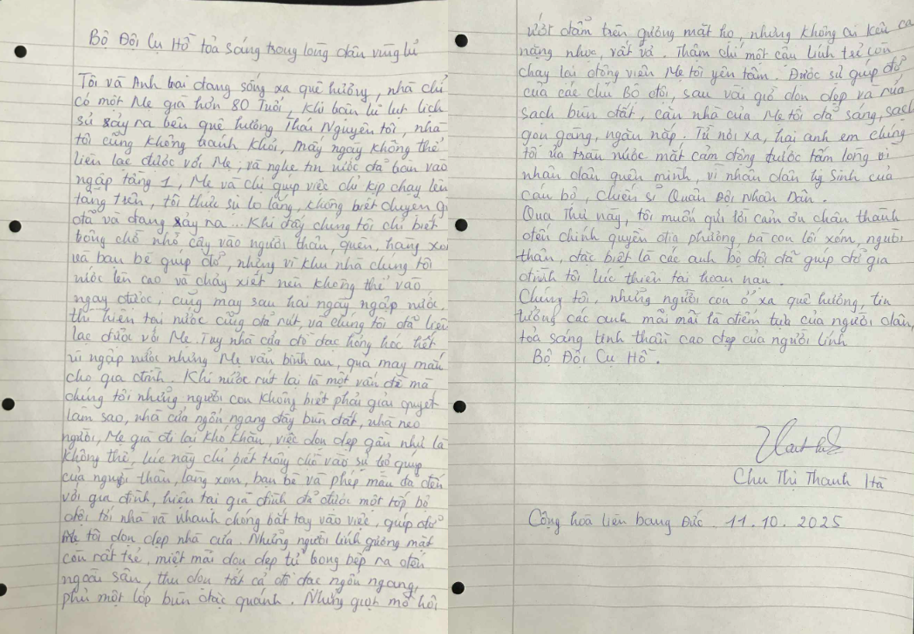 Bộ Đội Cụ Hồ toả sáng trong lòng dân vùng lũ
Tôi và Anh hai đang sống xa quê hương, nhà chỉ
có một Mẹ già hơn 80 tuổi. Khi bão lũ lụt lịch
sử xảy ra bên quê hương Thái Nguyên tôi, nhà
tôi cũng không tránh khỏi, mấy ngày không thể
liên lạc được với Mẹ, và nghe tin nước đã tràn vào
ngập tầng 1, Mẹ và chị giúp việc chỉ kịp chạy lên
tầng trên, tôi thực sự lo lắng, không biết chuyện gì
đã và đang xảy ra... Khi đấy chúng tôi chỉ biết
trông chờ nhờ cậy vào người thân, quen, hàng xóm
và bạn bè giúp đỡ, nhưng vì khu nhà chúng tôi
nước lên cao và chảy xiết nên không thể vào
ngay được, cũng may sau hai ngày ngập nước,
thì hiện tại nước cũng đã rút, và chúng tôi đã liên
lạc được với Mẹ. Tuy nhà cửa đồ đạc hỏng hóc hết
vì ngập nước nhưng Mẹ vẫn bình an, quá may mắn
cho gia đình. Khi nước rút lại là một vấn đề mà
chúng tôi những người con không biết phải giải quyết
làm sao, nhà cửa ngổn ngang đầy bùn đất, nhà neo
người, Mẹ già đi lại khó khăn, việc dọn dẹp gần như là
không thể, lúc này chỉ biết trông chờ vào sự trợ giúp
của người thân, làng xóm, bạn bè và phép màu đã đến
với gia đình, hiện tại gia đình đã được một tốp bộ
đội tới nhà và nhanh chóng bắt tay vào việc, giúp đỡ
Mẹ tôi dọn dẹp nhà cửa. Những người lính gương mặt
còn rất trẻ, miệt mài dọn dẹp từ trong bếp ra đến
ngoài sân, thu dọn tất cả đồ đạc ngổn ngang,
phủ một lớp bùn đặc quánh. Những giọt mồ hôi
ướt đẫm trên gương mặt họ, nhưng không ai kêu ca
nặng nhọc, vất vả. Thậm chí một cậu lính trẻ còn
chạy lại động viên Mẹ tôi yên tâm. Được sự giúp đỡ
của các chú Bộ đội, sau vài giờ dọn dẹp và rửa
sạch bùn đất, căn nhà của Mẹ tôi đã sáng, sạch
gọn gàng, ngăn nắp. Từ nơi xa, hai anh em chúng
tôi ứa tràn nước mắt cảm động được tấm lòng vì
nhân dân quên mình, vì nhân dân hy sinh của
cán bộ, chiến sĩ Quân Đội Nhân Dân.
Qua Thư này, tôi muốn gửi lời cảm ơn chân thành
đến chính quyền địa phương, bà con lối xóm, người
thân, đặc biệt là các anh bộ đội đã giúp đỡ gia
đình tôi lúc thiên tai hoạn nạn.
Chúng tôi, những người con ở xa quê hương, tin
tưởng các anh mãi mãi là điểm tựa của người dân,
toả sáng tinh thần cao đẹp của người lính
Bộ Đội Cụ Hồ.
Chu Thị Thanh Hà
Cộng hoà liên bang Đức 11.10.2025